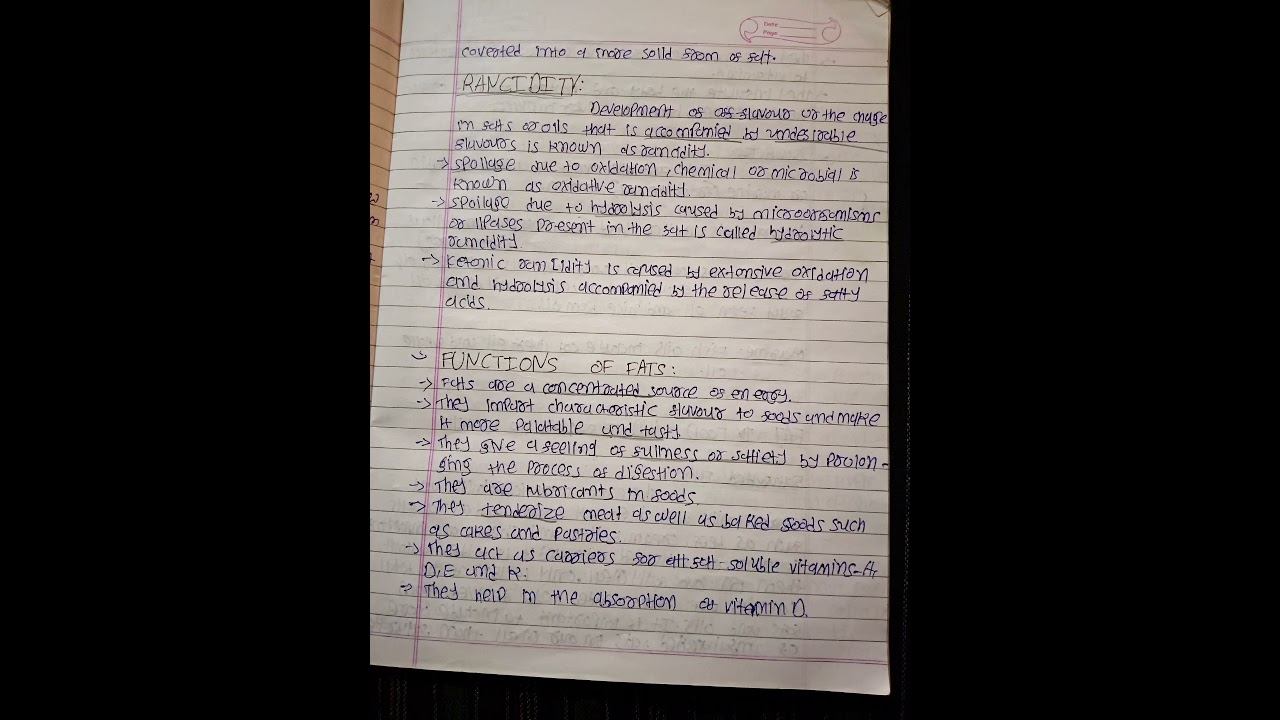 Date
Page
coverted into a more solid form of fat.
RANCIDITY:
Development of off-flavour or the chage
in fats or oils that is accompanied by undesirable
flavours is known as rancidity.
→ spoilage due to oxidation, chemical or microbial is
known as oxidative rancidity.
→ spoilage due to hydrolysis caused by microorganisms
or lipases present in the fat is called hydrolytic
rancidity.
→ Ketonic rancidity is caused by extensive oxidation
and hydrolysis accompanied by the release of fatty
acids.
→ FUNCTIONS OF FATS:
→ Fats are a concentrated source of energy.
→ They impart characteristic flavour to foods and make
it more palatable and tasty.
→ They give a feeling of fullness or satiety by prolon-
ging the process of digestion.
→ They are lubricants in foods
→ They tenderize meat as well as baked goods such
as cakes and pastries.
→ They act as carriers for fat-soluble vitamins-A,
D, E and K.
→ They help in the absorption of vitamin D.